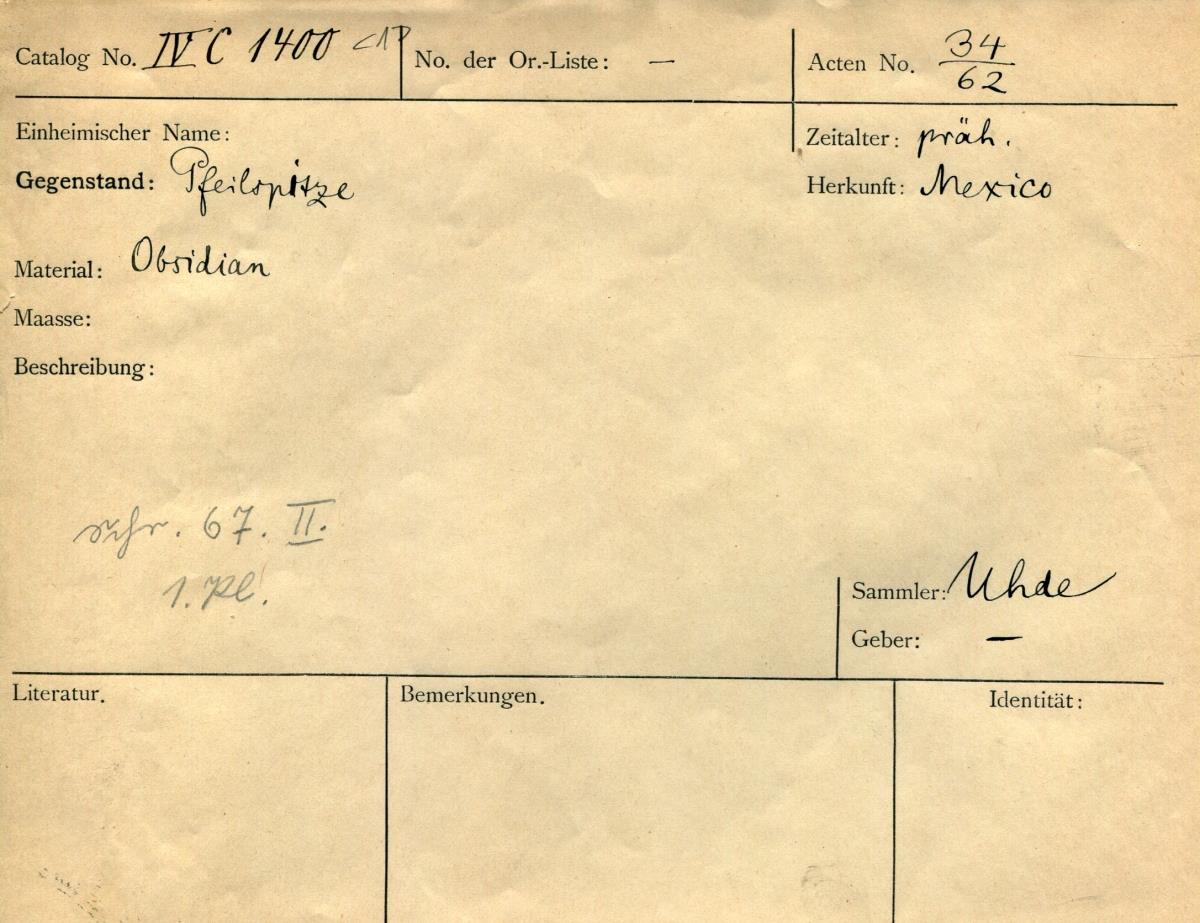 Catalog No. IV C 1400 <1> No. der Or.-Liste: — Acten No. 34/62
Einheimischer Name: Zeitalter: präh.
Gegenstand: Pfeilspitze Herkunft: Mexico
Material: Obsidian
Maasse:
Beschreibung:
Schr. 67. II.
1. Pl.
Sammler: Uhde
Geber: —
Literatur. Bemerkungen. Identität: